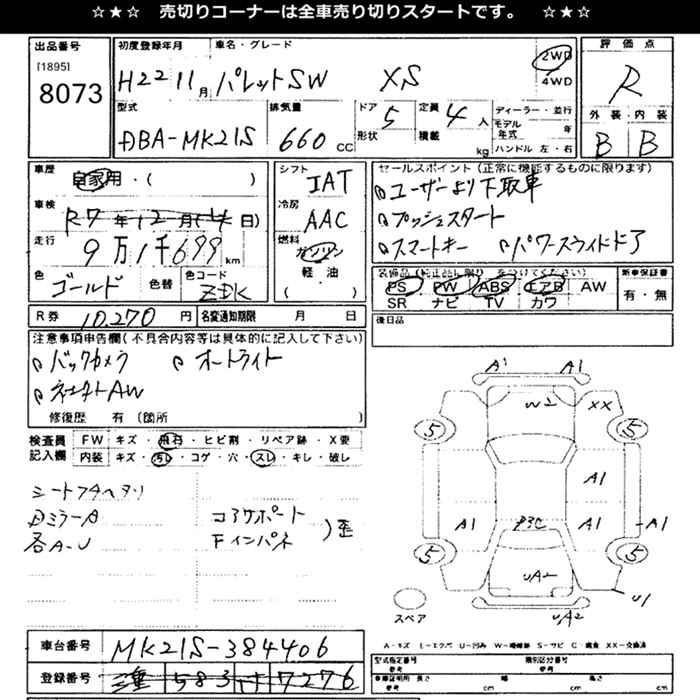 ☆★☆ 売切りコーナーは全車売り切りスタートです。 ☆★☆
出品番号 初度登録年月 車名・グレード 評価点
[1895] 8073
H22 11月 パレットSW XS 2WD 4WD R
型式 排気量 ドア 5 形状 定員 4人 積載 kg ディーラー・並行 モデル年式 年 ハンドル 左・右 外装・内装
DBA-MK21S 660cc B B
車歴 自家用・( ) シフト IAT セールスポイント(正常に機能するものに限ります)
車検 R7年12月(4日) 冷房 AAC
ユーザーより下取車
プッシュスタート
走行 9万1千699km 燃料 ガソリン 軽油 ( )
スマートキー パワースライドドア
色 ゴールド 色替 色コード ZDK
装備品(純正品に限り をつけてください) 新車保証書
PS PW ABS エアB AW 有・無
SR ナビ TV カワ
R券 10,270円 名変通知期限 月 日 後日品
注意事項申告欄(不具合内容等は具体的に記入して下さい)
バックカメラ オートライト
社外AW
修復歴 有(箇所 )
検査員記入欄 FW キズ・飛石・ヒビ割・リペア跡・X要
内装 キズ・汚レ・コゲ・穴・スレ・キレ・破レ
シートフタヘタリ
DミラーA コアサポート
各A-U Fインパネ )歪
A1 A1
W2 XX
5 5
A1
A1 P3C A1 A1
5 5
UA2 U1
スペア UA2
A-キズ U-凹み W-補修跡 S-サビ C-腐食 XX-交換済
車台番号 MK21S-384406
型式指定番号 類別区分番号
参考 参考
登録番号 三重 583 7276
車庫証明用 長さ 幅 高さ
参考 cm cm cm